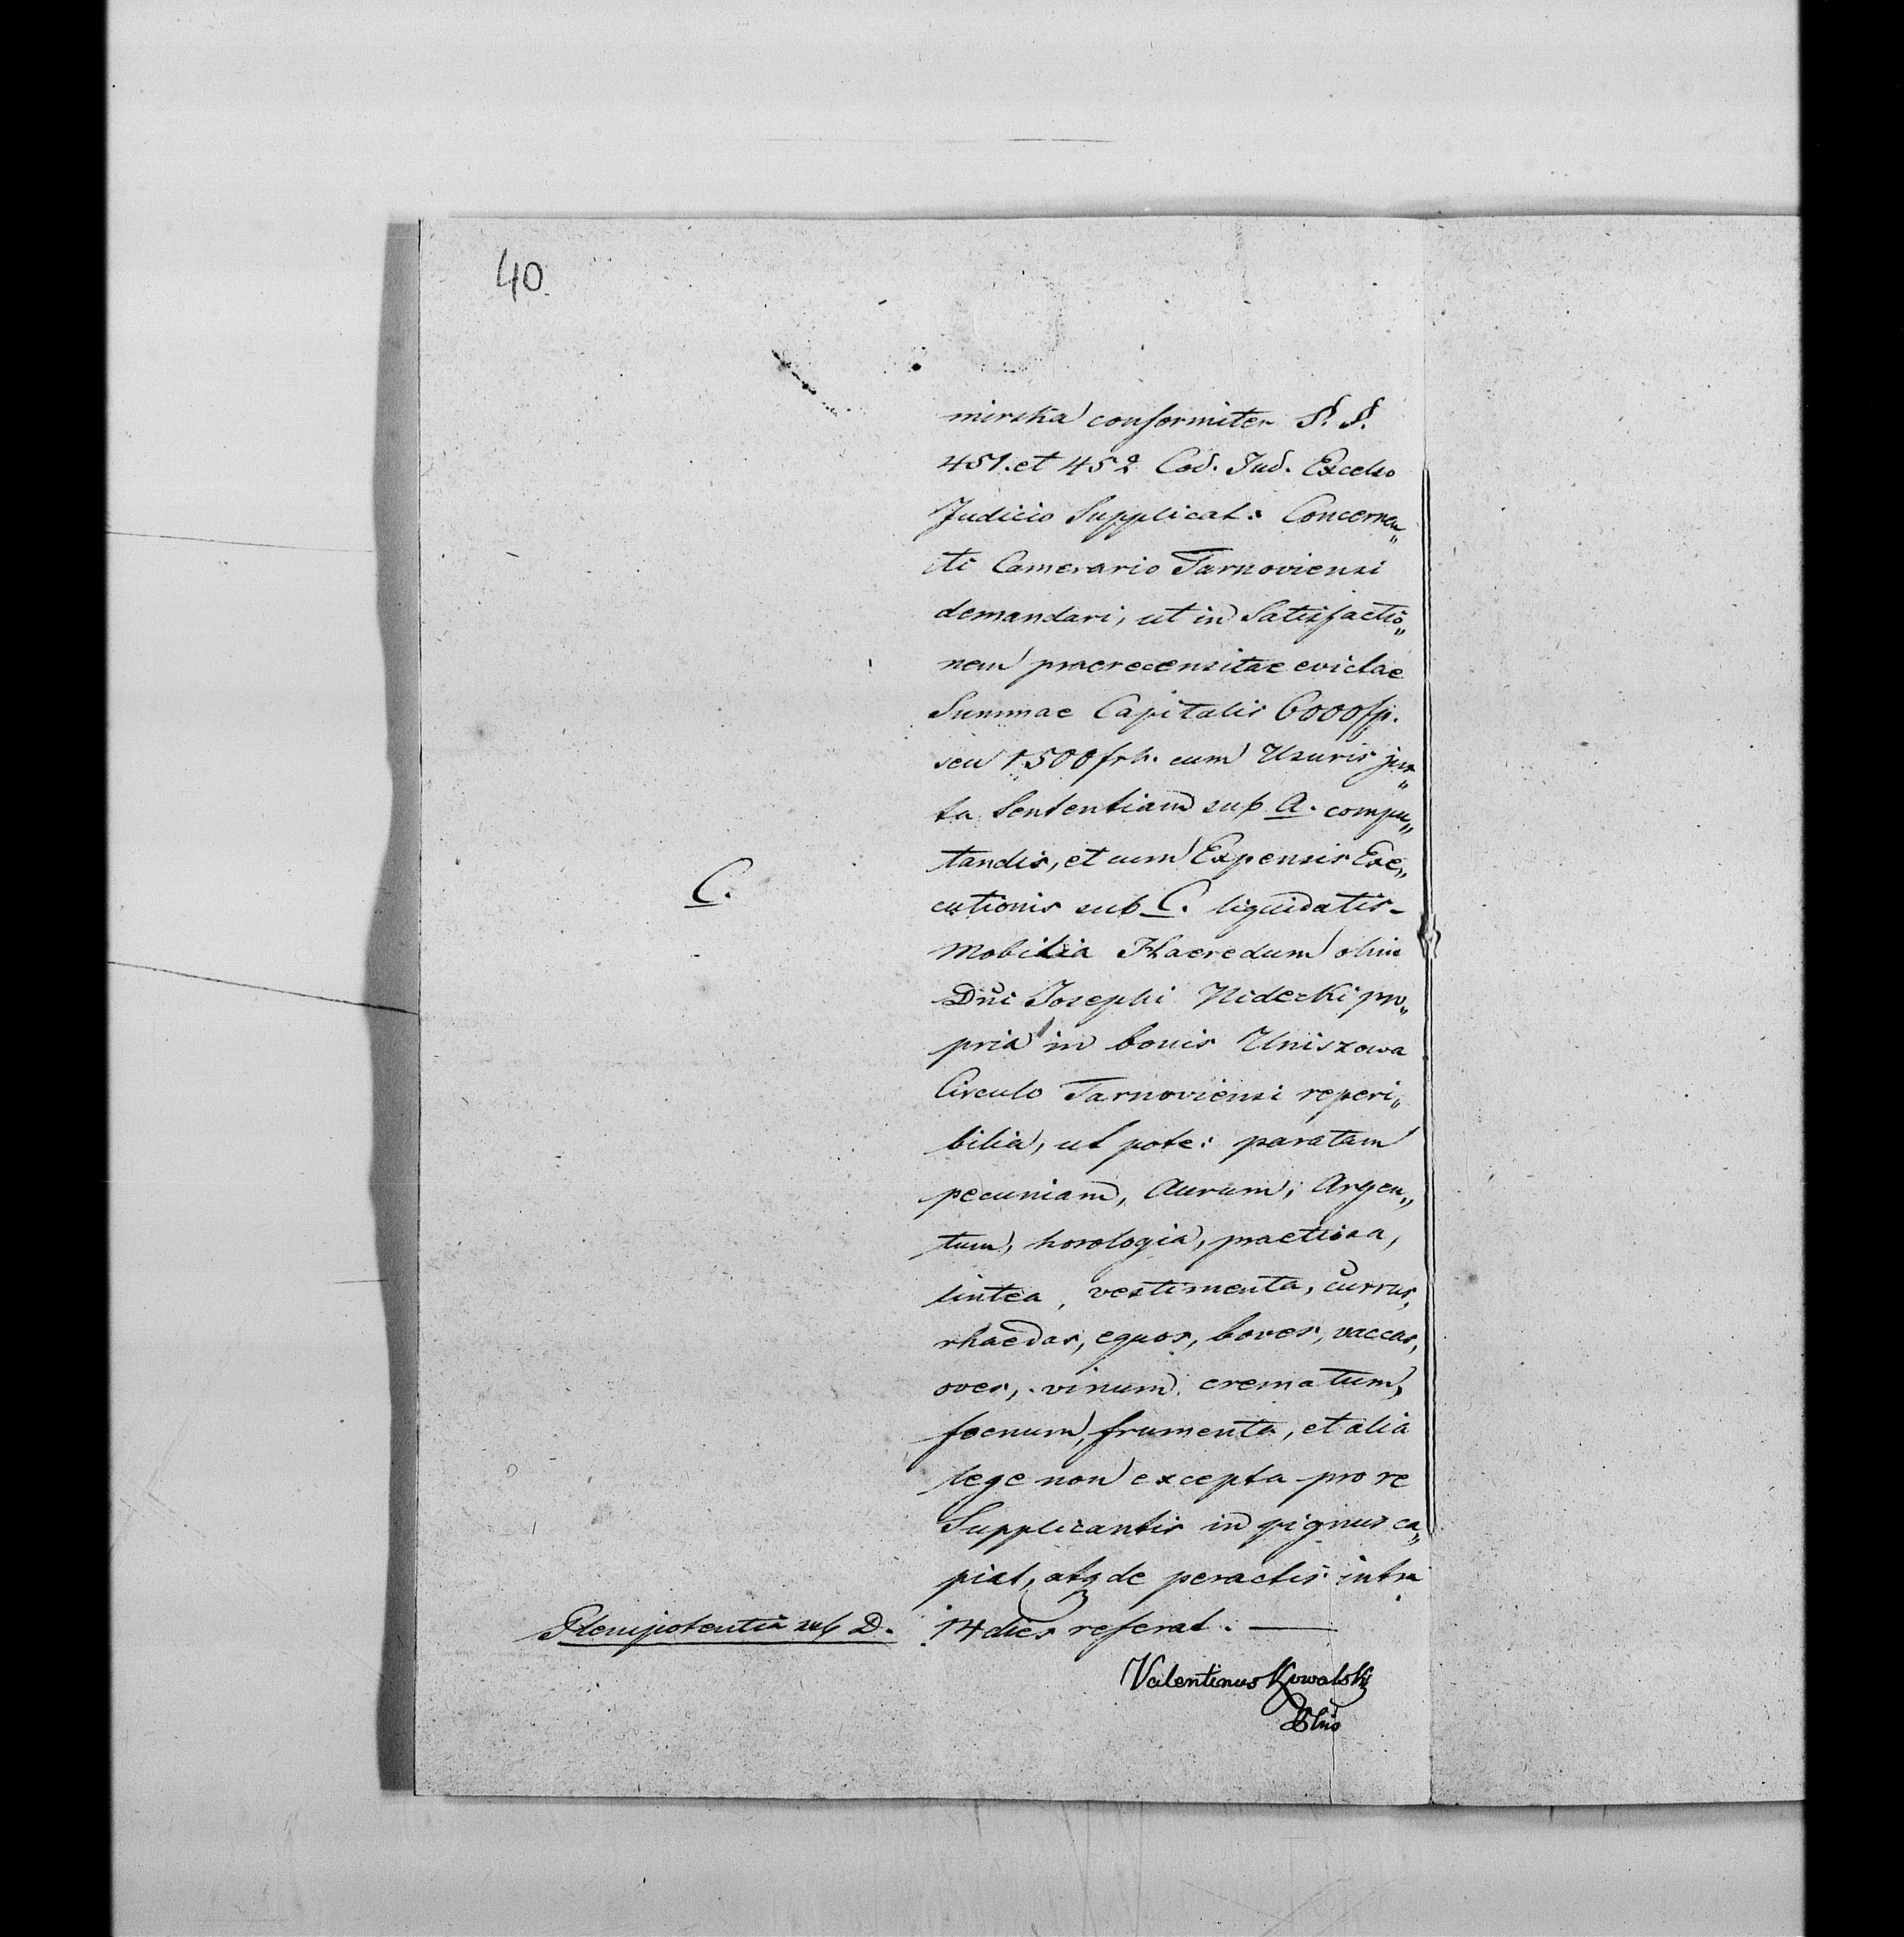 40
mirska conformiter §. §.
451. et 452 Cod. Jud. Excelso
Judicio Supplicat: Concernen„
ti Camerario Tarnoviensi
demandari, ut in Satisfactio„
nem praerecensitae evictae
Summae Capitalis 6000 fp.
seu 1500 frh. cum Usuris jux„
ta Sententiam sub A. compu„
tandis, et cum Expensis Exe„
C.
cutionis sub C. liquidatis-
Mobilia Haeredum olim
Dni Josephi Nidecki pro„
pria in bonis Uniszowa
Circulo Tarnoviensi reperi„
bilia, ut pote: paratam
pecuniam, Aurum, Argen„
tum, horologia, praetiosa,
lintea, vestimenta, currus,
rhaedas, equos, boves, vaccas,
oves, vinum crematum,
foenum, frumenta, et alia
lege non excepta pro re
Supplicantis in pignus ca„
piat, atq de peractis intra
Plenipotentia sub D. 14 dies referat. —
Valentinus Kowalski